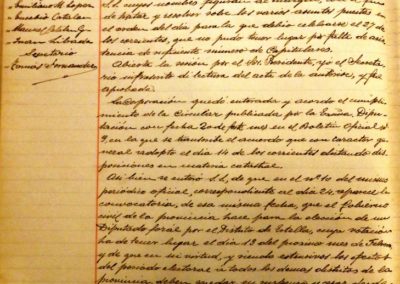 Emiliano M. Lopez
Eusebio Catalan
Manuel
Secretario
Tomas Fernandez
S.S. cuyos nombres figuran al margen, con el fin
de tratar y resolver sobre los varios asuntos puestos en
el orden del día para la que debio celebrarse el 27 de
los corrientes y no pudo tener lugar por falta de asis-
tencia de suficiente número de Capitulares.
Abierta la sesión por el Sr. Presidente, yo el Secreta-
rio infrascrito di lectura del acta de la anterior, y fue
aprobada.
La Corporación quedó enterada y acordó el cumpli-
miento de la Circular publicada por la Excma. Dipu-
tación con fecha 20 de este mes en el Boletín Oficial nº
9, en la que se transcribe el acuerdo que con caracter ge-
neral adoptó el día 14 de los corrientes dictando dis-
posiciones en materia catastral.
Así bien se enteró S.S., de que en el nº 10 del mismo
periódico oficial, correspondiente al día 24, aparece la
convocatoria, de esa misma fecha, que el Gobierno
civil de la provincia hace para la elección de un
Diputado foral por el Distrito de Estella, cuya votación
ha de tener lugar el día 13 del proximo mes de Febrero
y de que en su virtud, y siendo extensivos los efectos
del periodo electoral a todos los demas distritos de la
provincia deben quedar en suspenso desde